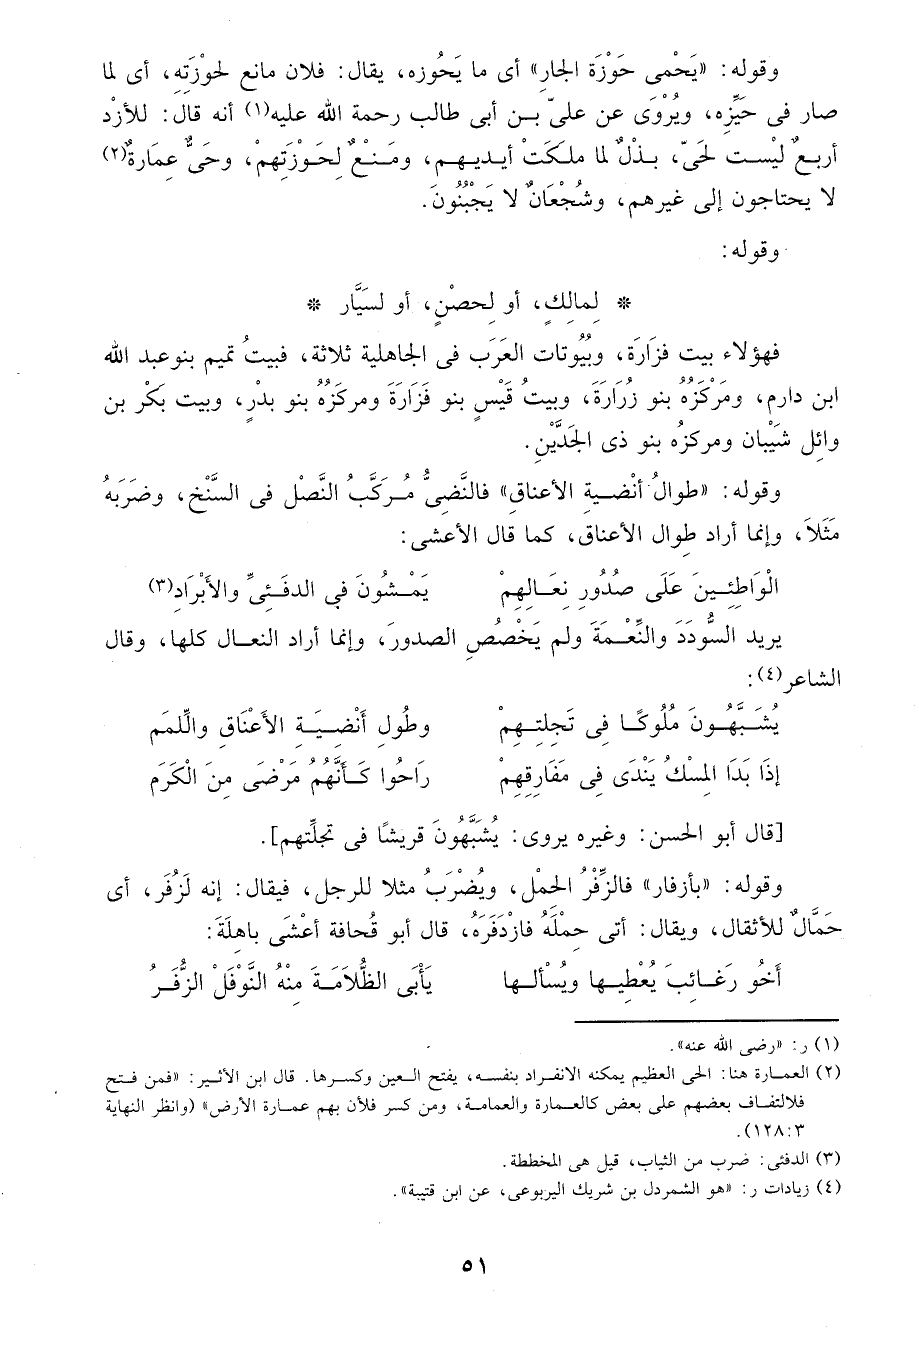 وقوله: «يَحْمِى حَوْزَة الجار» أى ما يَحُوزه، يقال: فلان مانع لحوْزَته، أى لما
صار فى حَيِّزه، ويُرْوَى عن علىّ بـن أبى طالب رحمة الله عليه(١) أنه قال: للأزْد
أربعٌ ليست لحىّ، بذلٌ لما ملكتْ أيديهم، ومَنْعٌ لحَوْزَتهمْ، وحَىٌّ عمارةٌ(٢)
لا يحتاجون إلى غيرهم، وشُجْعَانٌ لا يَجبُنُونَ.
وقوله:
* لمالكٍ، أو لحصْنٍ، أو لسَيَّار *
فهؤلاء بيت فزَارَة، وبُيُوتات العَرَب فى الجاهلية ثلاثة، فبيتُ تميم بنو عبد الله
ابن دارم، ومَرْكزُهُ بنو زُرارَةَ، وبيتُ قَيْسٍ بنو فَزَارَةَ ومركزُهُ بنو بدْرٍ، وبيت بَكْر بن
وائل شَيْبان ومركزُه بنو ذى الجَدَّيْنِ.
وقوله: «طوالُ أنْضـية الأعناق» فالنَّضىُّ مُركَّبُ النَّصْل فى السِّنْخ، وضرَبهُ
مَثَلاً، وإنما أراد طوال الأعناق، كما قال الأعشى:
الْوَاطئـينَ عَلَى صُدُور نعَـالهِمْ يَمْـشُونَ فى الدفَـنىِّ والأَبْرَاد(٣)
يريد السُّودَدَ والنِّعْمَةَ ولم يَخْصُصِ الصدورَ، وإنما أراد النعـال كلها، وقال
الشاعر(٤):
يُشَبَّهُـونَ مُلُوكًـا فى تَجلتـهِمْ وطُول أنْضـيَـة الأعْنَاق واللِّمَم
إذَا بَدَا المِسْكُ يَنْدَى فى مَفَارِقهمْ رَاحُوا كَـأنَّهُمُ مَرْضَى منَ الْكَرَم
[قال أبو الحسن: وغيره يروى: يُشبَّهُونَ قريشًا فى تجلَّتهم].
وقوله: «بأزفار» فالزِّفْرُ الحمْل، ويُضْرَبُ مثلا للرجل، فيقال: إنه لَزُفَر، أى
حَمَّالٌ للأثقال، ويقال: أتى حمْلَهُ فازْدَفَرَهُ، قال أبو قُحافة أعْشَى باهلَةَ:
أخُو رَغَـائبَ يُعْطيـها ويُسْألـها يَأبَى الظُّلامَـةَ منْهُ النَّوْفَلُ الزُّفَـرُ
(١) ر: «رضى الله عنه».
(٢) العمـارة هنا: الحى العظيم يمكنه الانفراد بنفسه، يفتح العين وكسرها. قال ابن الأثير: «فمن فـتح
فلالتفـاف بعضهم على بعض كالعمارة والعمامة، ومن كسر فلأن بهم عمارة الأرض» (وانظر النهاية
٣: ١٢٨).
(٣) الدفئى: ضرب من الثياب، قيل هى المخططة.
(٤) زيادات ر: «هو الشمردل بن شريك اليربوعى، عن ابن قتيبة».
٥١